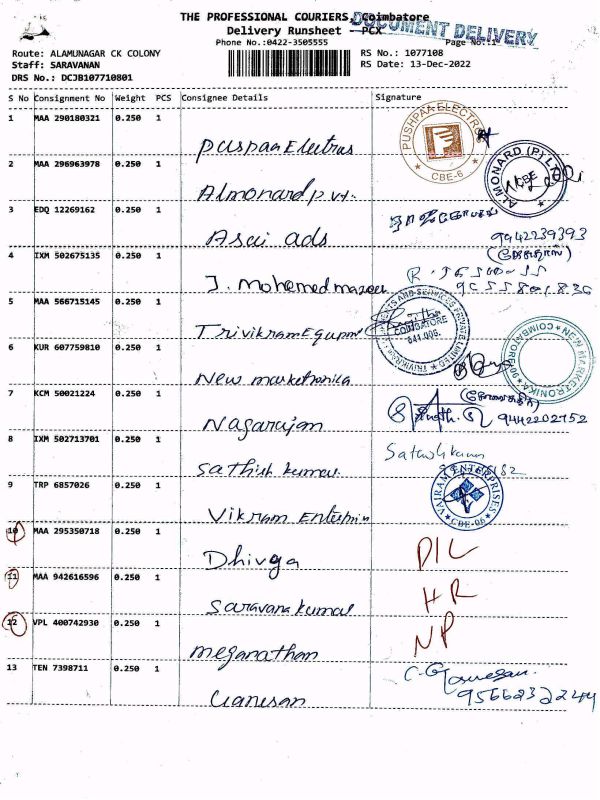 THE PROFESSIONAL COURIERS, Coimbatore
DOCUMENT DELIVERY
Delivery Runsheet - PCX
Phone No.:0422-3505555
Page No.:1
Route: ALAMUNAGAR CK COLONY
Staff: SARAVANAN
DRS No.: DCJB107710801
RS No.: 1077108
RS Date: 13-Dec-2022
S No Consignment No Weight PCS Consignee Details Signature
1 MAA 290180321 0.250 1
Puspaa Electras
PUSHPAA ELECTRO
CBE-6
2 MAA 296963978 0.250 1
Almonard P.vt.
ALMONARD (P) LTD
CBE
3 EDQ 12269162 0.250 1
Asai ads
9442239393
4 IXM 502675135 0.250 1
J. Mohamed
5 MAA 566715145 0.250 1
Trivikram
COIMBATORE
641 006.
6 KUR 607759810 0.250 1
New marketronika
NEW MARKETRONIKA
COIMBATORE
7 KCM 50021224 0.250 1
Nagarajan
9442202752
8 IXM 502713701 0.250 1
Sathish kumar
9 TRP 6857026 0.250 1
Vikram
VAIRAM ENTERPRISES
CBE-06
10 MAA 295350718 0.250 1
Dhivya
D/L
11 MAA 942616596 0.250 1
Saravana kumar
HR
12 VPL 400742930 0.250 1
Meganathan
NP
13 TEN 7398711 0.250 1
Ganesan
C. Ganesan